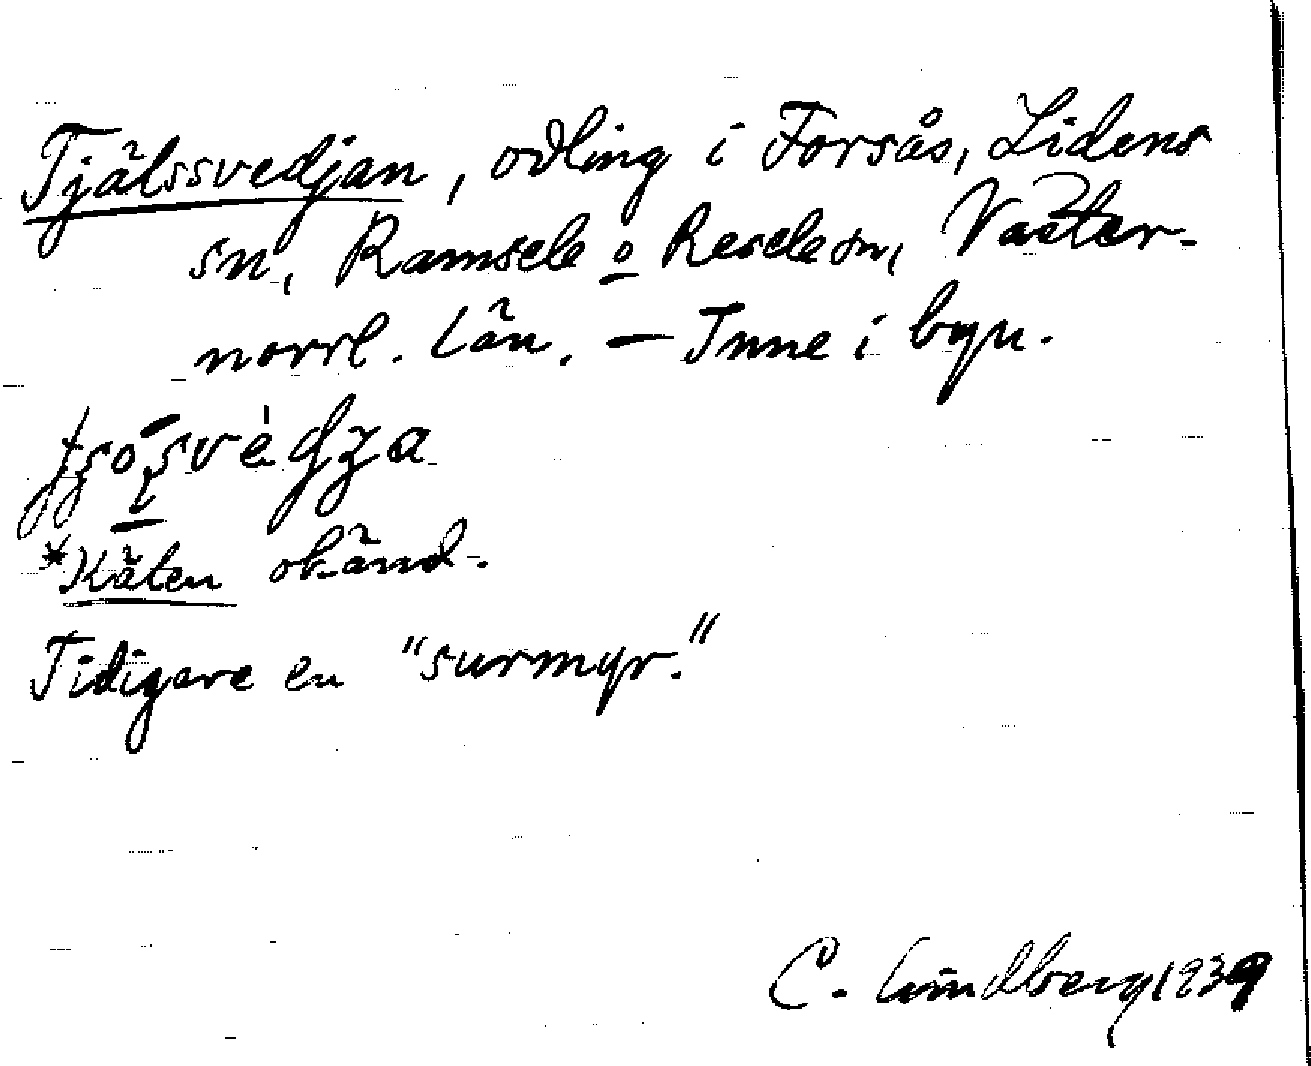 Tjälssvedjan, odling i Forsås, Lidens
sn, Ramsele o Resele sn, Väster-
norrl. län. — Inne i byn.
*Käten okänd.
Tidigare en "surmyr."
C. Lindberg 1939